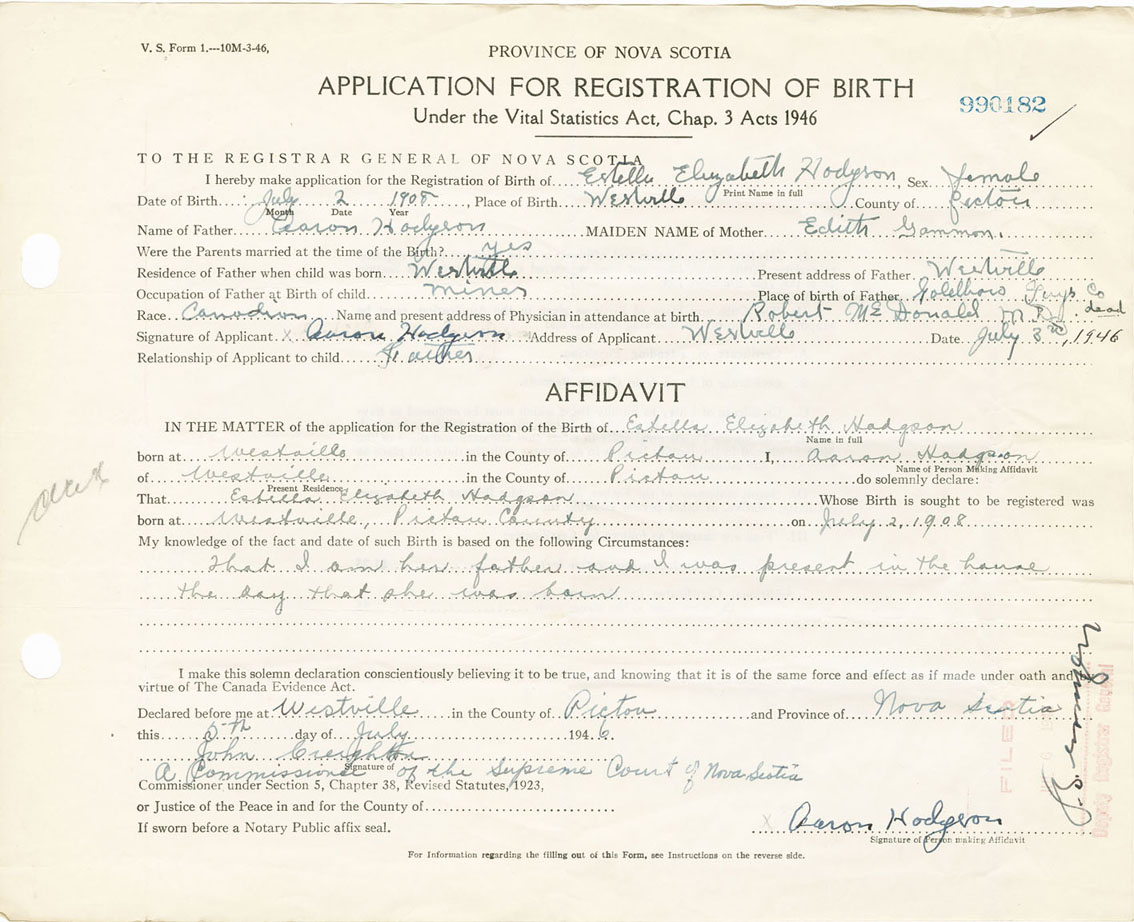 V. S. Form 1.---10M-3-46,
PROVINCE OF NOVA SCOTIA
APPLICATION FOR REGISTRATION OF BIRTH
990182
Under the Vital Statistics Act, Chap. 3 Acts 1946
TO THE REGISTRAR GENERAL OF NOVA SCOTIA
I hereby make application for the Registration of Birth of Estella Elizabeth Hodgson Sex female
Print Name in full
Date of Birth July 2 1908, Place of Birth Westville County of Pictou
Month Date Year
Name of Father Aaron Hodgson MAIDEN NAME of Mother Edith Gammon.
Were the Parents married at the time of the Birth? yes
Residence of Father when child was born Westville Present address of Father Westville
Occupation of Father at Birth of child miner Place of birth of Father Goldboro Guys Co
Race Canadian Name and present address of Physician in attendance at birth Robert McDonald dead
Signature of Applicant x Aaron Hodgson Address of Applicant Westville Date July 3rd, 1946
Relationship of Applicant to child Father
AFFIDAVIT
IN THE MATTER of the application for the Registration of the Birth of Estella Elizabeth Hodgson
Name in full
born at Westville in the County of Pictou I, Aaron Hodgson
Name of Person Making Affidavit
of Westville in the County of Pictou do solemnly declare:
Present Residence
That Estella Elizabeth Hodgson Whose Birth is sought to be registered was
born at Westville, Pictou County on July 2, 1908
My knowledge of the fact and date of such Birth is based on the following Circumstances:
That I am her father and I was present in the house
the day that she was born
I make this solemn declaration conscientiously believing it to be true, and knowing that it is of the same force and effect as if made under oath and by
virtue of The Canada Evidence Act.
Declared before me at Westville in the County of Pictou and Province of Nova Scotia
this 5th day of July 1946
John Creighton
Signature of
A Commissioner of the Supreme Court of Nova Scotia
Commissioner under Section 5, Chapter 38, Revised Statutes, 1923,
or Justice of the Peace in and for the County of
If sworn before a Notary Public affix seal.
x Aaron Hodgson
Signature of Person making Affidavit
For Information regarding the filling out of this Form, see Instructions on the reverse side.
FILED
Deputy Registrar General